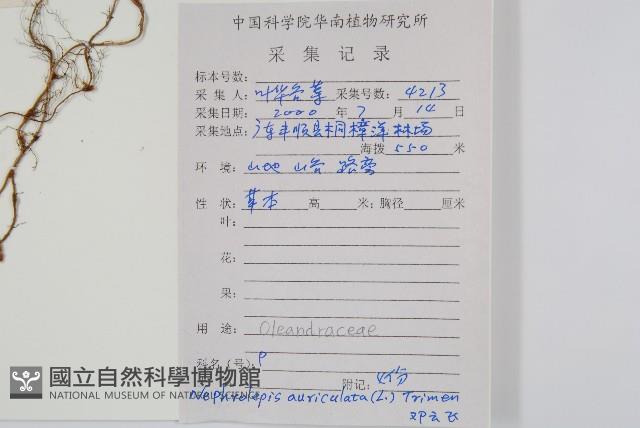 中国科学院华南植物研究所
采集记录
标本号数:
采集人: 叶华谷等 采集号数: 4213
采集日期: 2000 年 7 月 14 日
采集地点: 广东丰顺县桐梓洋林场
海拨 550 米
环境: 山地 山谷 路旁
性状: 草本 高 米: 胸径 厘米
叶:
花:
果:
用途: Oleandraceae
科名(号): P
附记: 4份
Nephrolepis auriculata (L.) Trimen
邓云飞
國立自然科學博物館
NATIONAL MUSEUM OF NATURAL SCIENCE